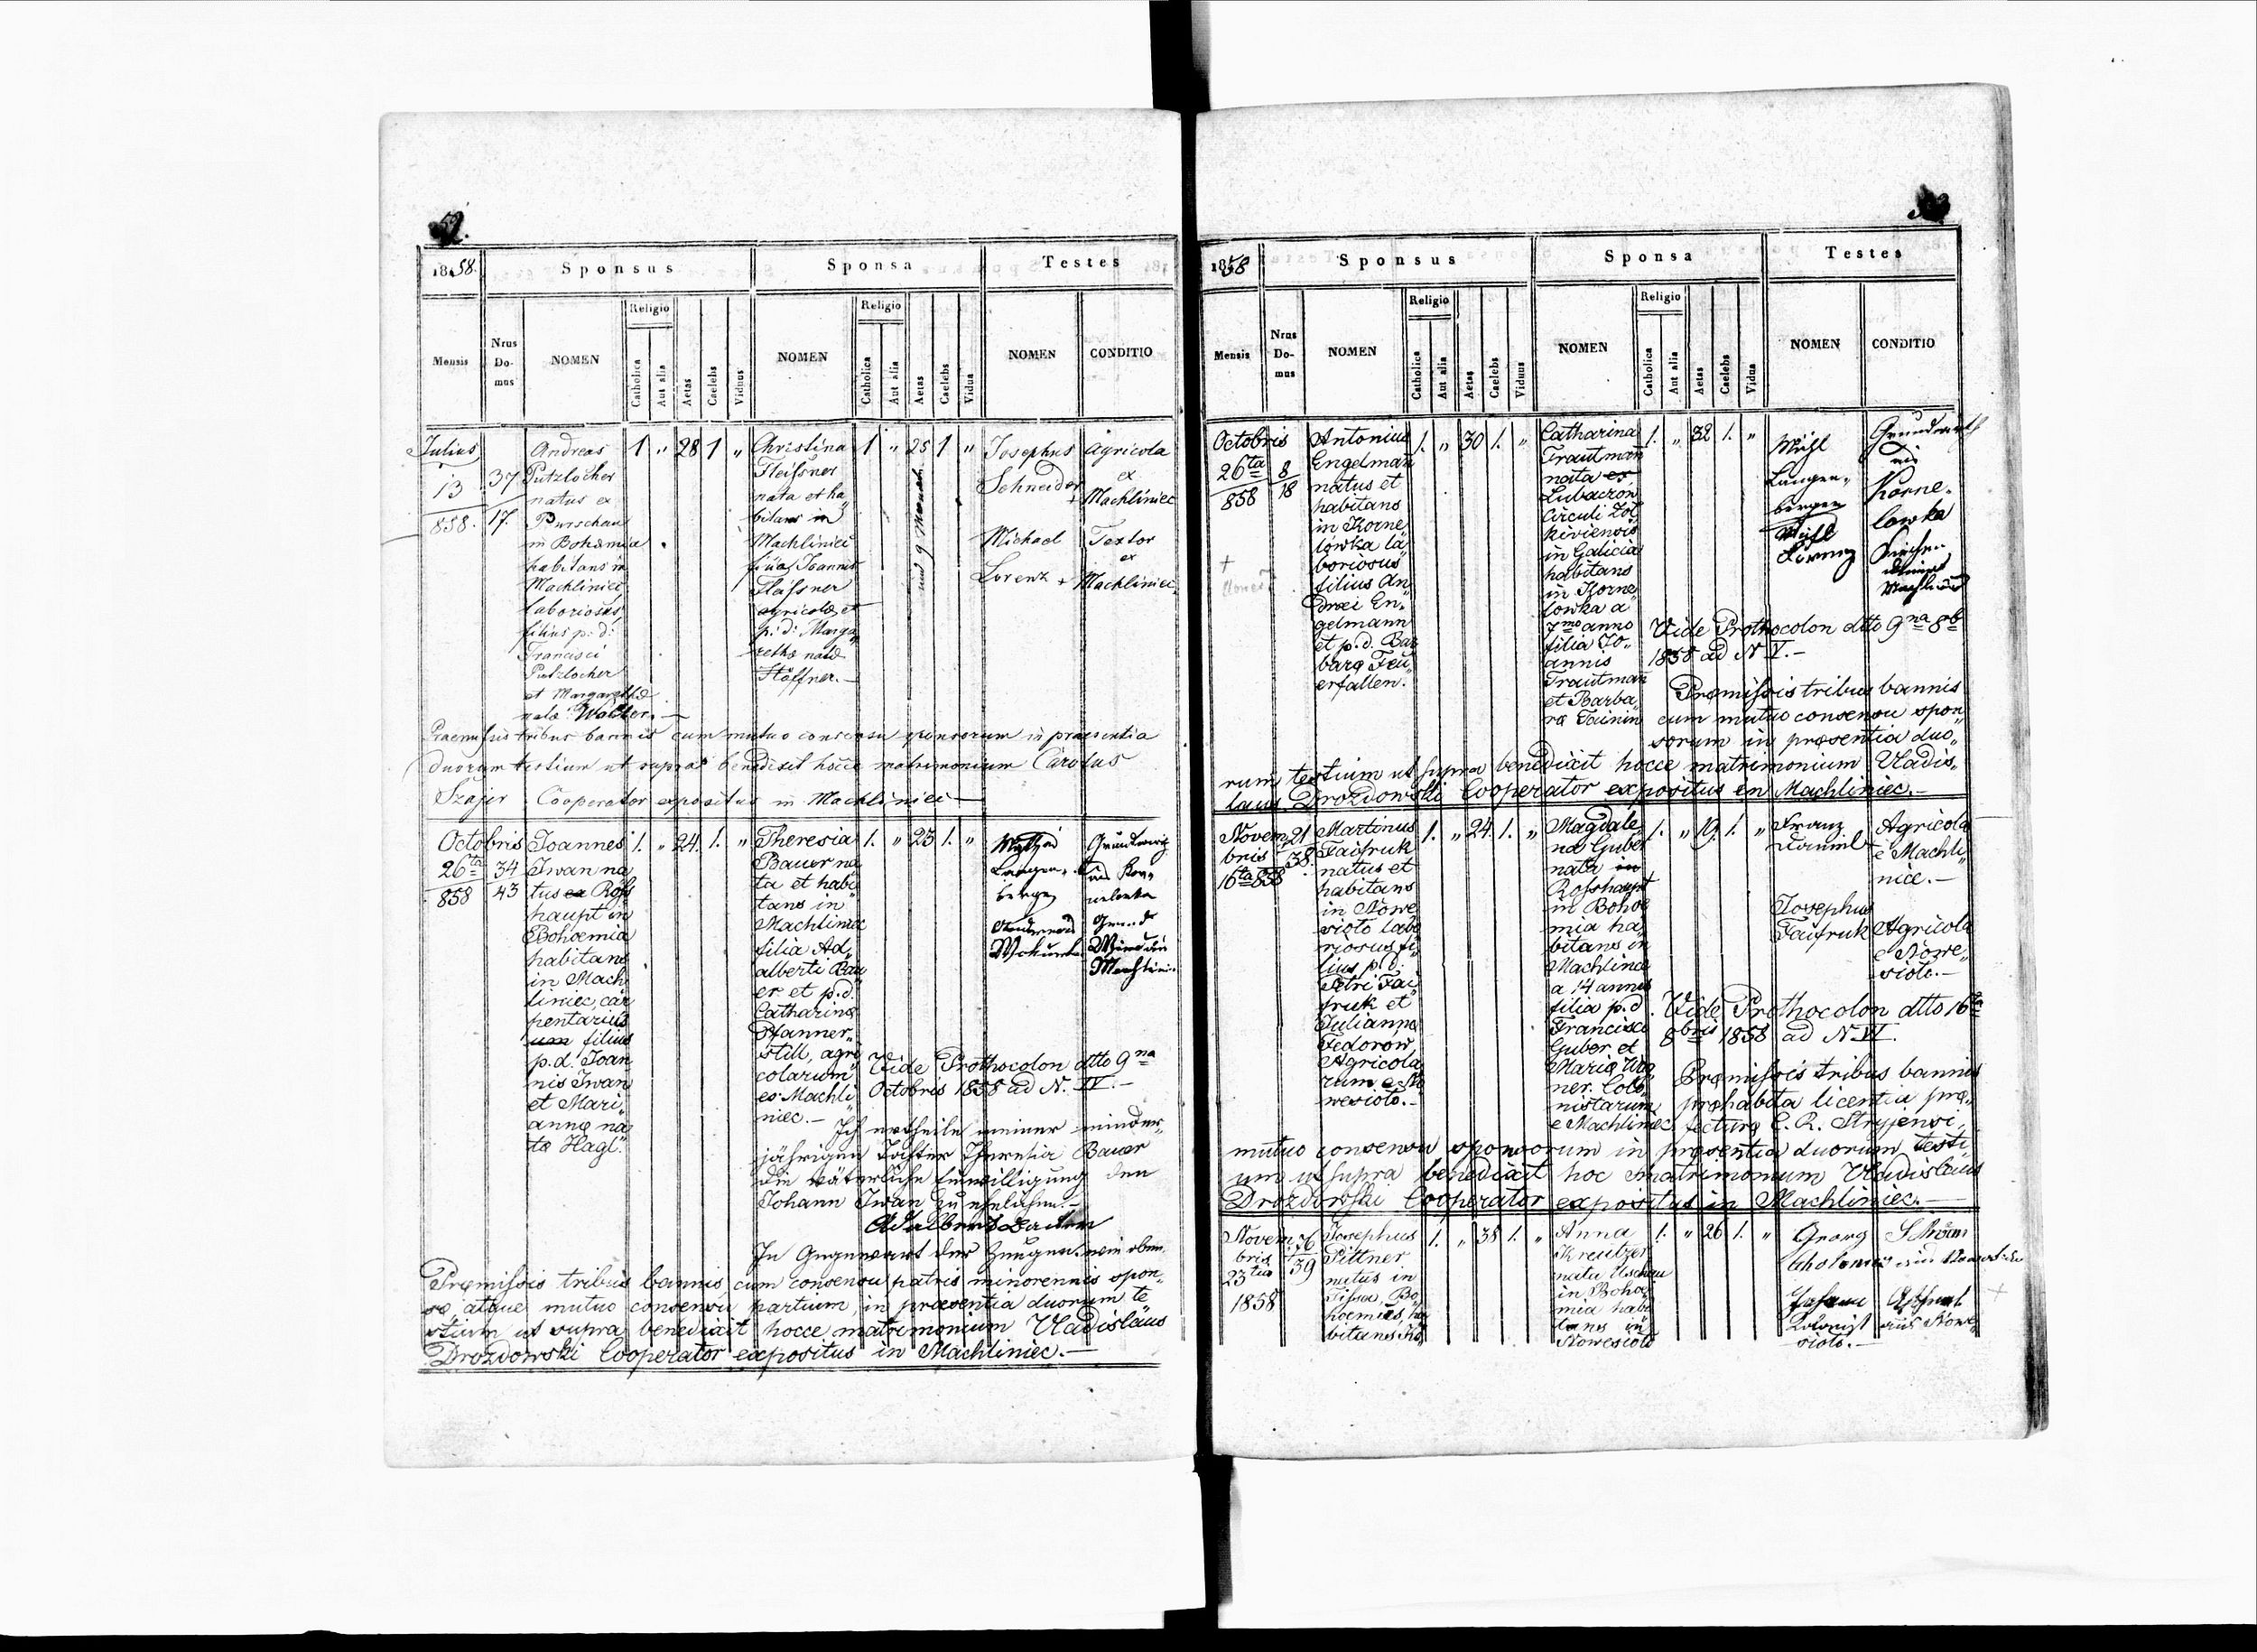 52.
1858.
Sponsus
Sponsa
Testes
Mensis
Nrus Do-mus
NOMEN
Religio
Catholica
Aut alia
Aetas
Caelebs
Viduus
NOMEN
Religio
Catholica
Aut alia
Aetas
Caelebs
Vidua
NOMEN
CONDITIO
Julius
13
858.
37
17.
Andreas
Putzlocher
natus ex
Purschau
in Bohemia
habitans in
Machliniec
laboriosus,
filius p: d:
Francisci
Putzlocher
et Margarethæ
natæ Walter. —
1 „ 28 1 „
Christina
Fleissner
nata et ha„
bitans in
Machliniec
filia Joannis
Fleissner
agricolæ et
p: d: Marga„
rethæ natæ
Stöffner. —
1 „ 25 1 „
und 9 Monat
Josephus
Schneider
+
Michael
Lorenz +
Agricola
ex
Machliniec
Textor
ex
Machliniec
Praemissis tribus bannis cum mutuo consensu sponsorum in praesentia
duorum testium ut supra benedixit hocce matrimonium Carolus
Szajer Cooperator expositus in Machliniec —
Octobris
26ta
858
34
43
Joannes
Iwan na
tus ex Ross
haupt in
Bohoemia
habitans
in Mach
liniec, car
pentarius
filius
p. d. Joan
nis Iwan
et Mari„
annæ na
tæ Hagl.
1. „ 24. 1. „
Theresia
Bauer na
ta et habi
tans in
Machliniec
filia Ad„
alberti Bau
er et p. d.
Catharina
Pfanner„
still, agri
colarum
ex Machli
niec. —
1. „ 23 1. „
Vide Prothocolon dtto 9na
Octobris 1858 ad N. IV. —
Ich ertheile meiner minder„
jährigen Tochter Theresia Bauer
die väterliche Einwilligung den
Johann Iwan zu ehelichen. —
Adalbert Bauer
In Gegenwart der Zeugen wie oben.
Præmissis tribus bannis, cum consensu patris minorennis spon„
sæ atque mutuo consensu partium, in præsentia duorum te
stium ut supra benedixit hocce matrimonium Vladislaus
Drozdowski Cooperator expositus in Machliniec. —
1858
Sponsus
Sponsa
Testes
Mensis
Nrus Do-mus
NOMEN
Religio
Catholica
Aut alia
Aetas
Caelebs
Viduus
NOMEN
Religio
Catholica
Aut alia
Aetas
Caelebs
Vidua
NOMEN
CONDITIO
Octobris
26ta
858
8
18
Antonius
Engelman
natus et
habitans
in Korne
lówka la
boriosus
filius An„
dreæ En„
gelmann
et p. d. Bar
baræ Feu„
erfallen.
1. „ 30 1. „
Catharina
Trautman
nata ex
Lubaczow
Circuli Zół
kieviensis
in Galicia
habitans
in Korne
lowka a
7mo anno
filia Jo„
annis
Trautman
et Barba„
ræ Tainin
1. „ 32 1. „
Vide Prothocolon dtto 9na 8b
1858 ad N. V. —
Præmissis tribus bannis
cum mutuo consensu spon„
sorum in præsentia duo„
rum testium ut supra benedixit hocce matrimonium Vladis„
laus Drozdowski Cooperator expositus in Machliniec. —
Novem
bris
16ta 858
21
38.
Martinus
Faifruk
natus et
habitans
in Nowe
sioło labo
riosus fi„
lius p. d.
Petri Fai
fruk et
Julianna
Fedorow
Agricola
rum e No
wesioło. —
1. „ 24. 1. „
Magdale
na Guber
nata in
Rosshaupt
in Bohoe
mia ha„
bitans in
Machlince
a 14 annis
filia p. d.
Francisci
Guber et
Maria
ner. Colo
nistarum
e Machliniec
1. „ 19. 1. „
Franz
Josephus
Faifruk
Agricola
e Machli„
niec. —
Agricola
e Nowe„
sioło. —
Vide Prothocolon dtto 16ta
8bris 1858 ad N. VI.
Præmissis tribus bannis
præhabita licentia præ„
fecturæ C. R. Stryjensi,
mutuo consensu sponsorum in præsentia duorum testi„
um ut supra benedixit hoc matrimonium Vladislaus
Drozdowski Cooperator expositus in Machliniec. —
Novem
bris
23tia
1858
76
39
Josephus
Pittner
natus in
Tissa, Bo„
hoemiæ, ha
bitans No
1. „ 38 1. „
Anna
Kreutzer
nata
in Bohoe
mia habi
tans in
Nowesioło
1. „ 26 1. „
Georg
Johann
Kolonist
aus Nowe„
sioło. —